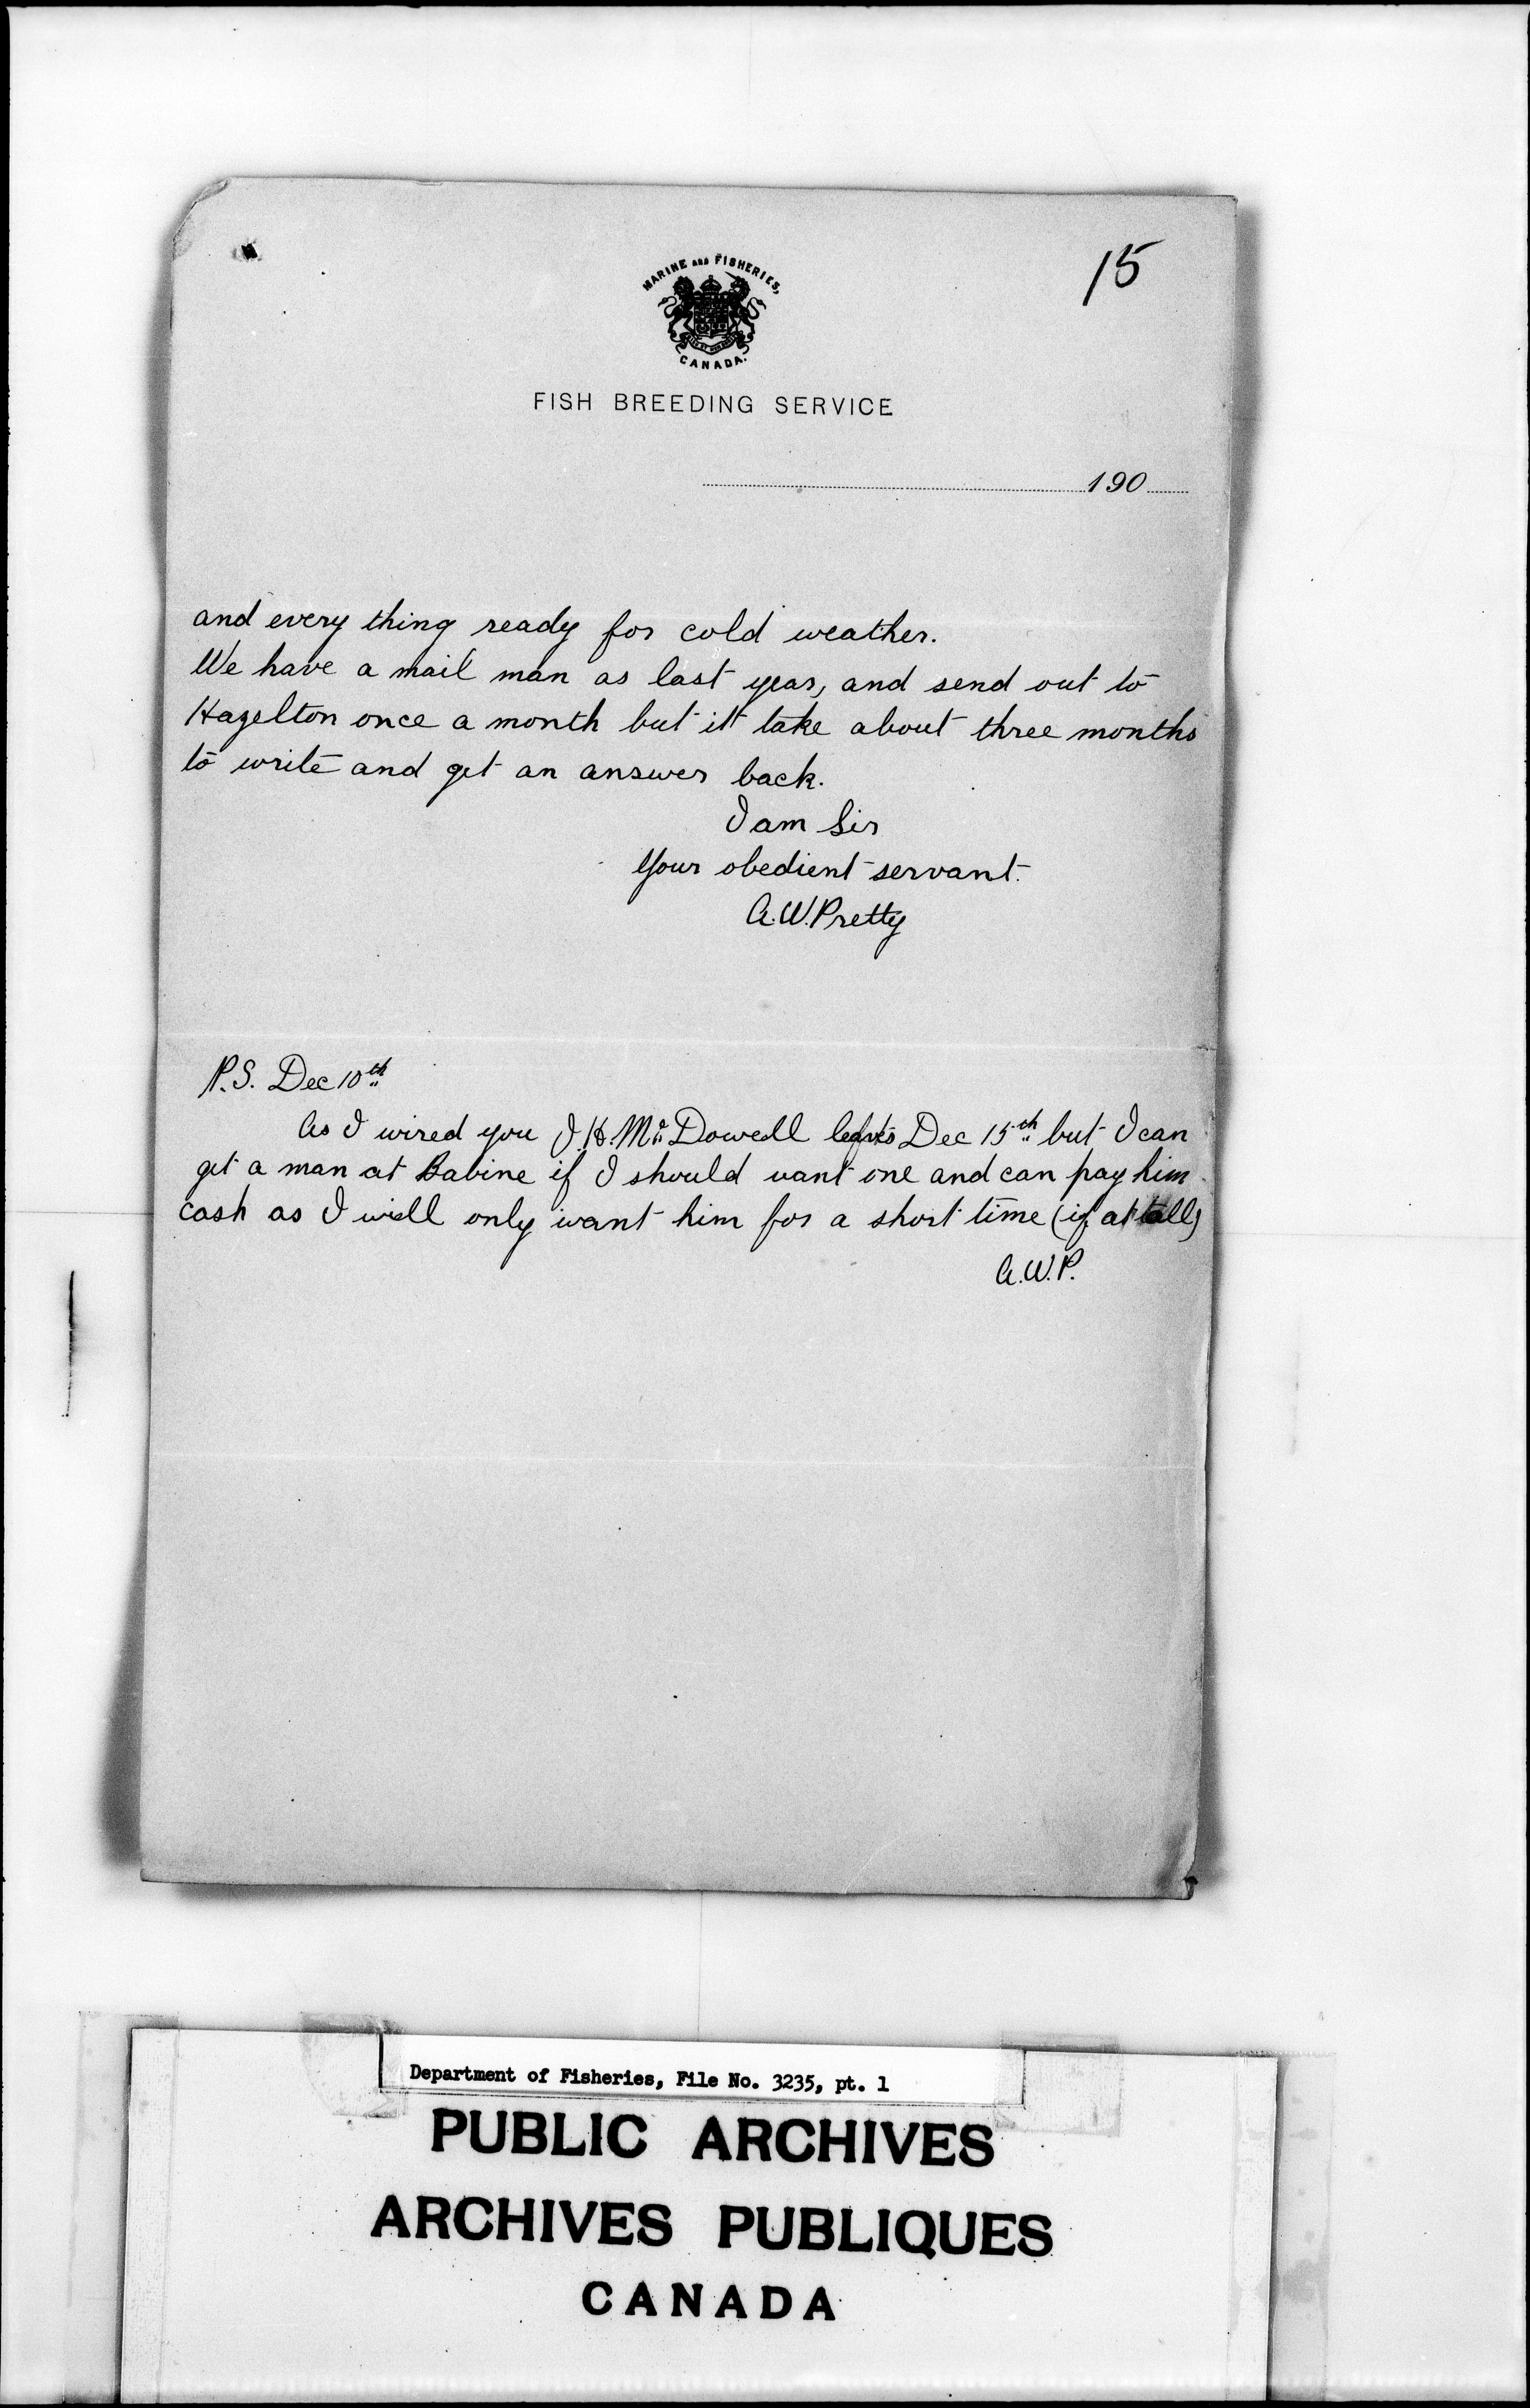 15
MARINE AND FISHERIES,
CANADA.
FISH BREEDING SERVICE
190
and every thing ready for cold weather.
We have a mail man as last year, and send out to
Hazelton once a month but it take about three months
to write and get an answer back.
I am Sir
Your obedient servant.
A.W. Pretty
P.S. Dec 10th
As I wired you J.H. Mc Dowell Dec 15th but I can
get a man at Babine if I should want one and can pay him
cash as I will only want him for a short time (if at all)
A.W.P.
Department of Fisheries, File No. 3235, pt. 1
PUBLIC ARCHIVES
ARCHIVES PUBLIQUES
CANADA